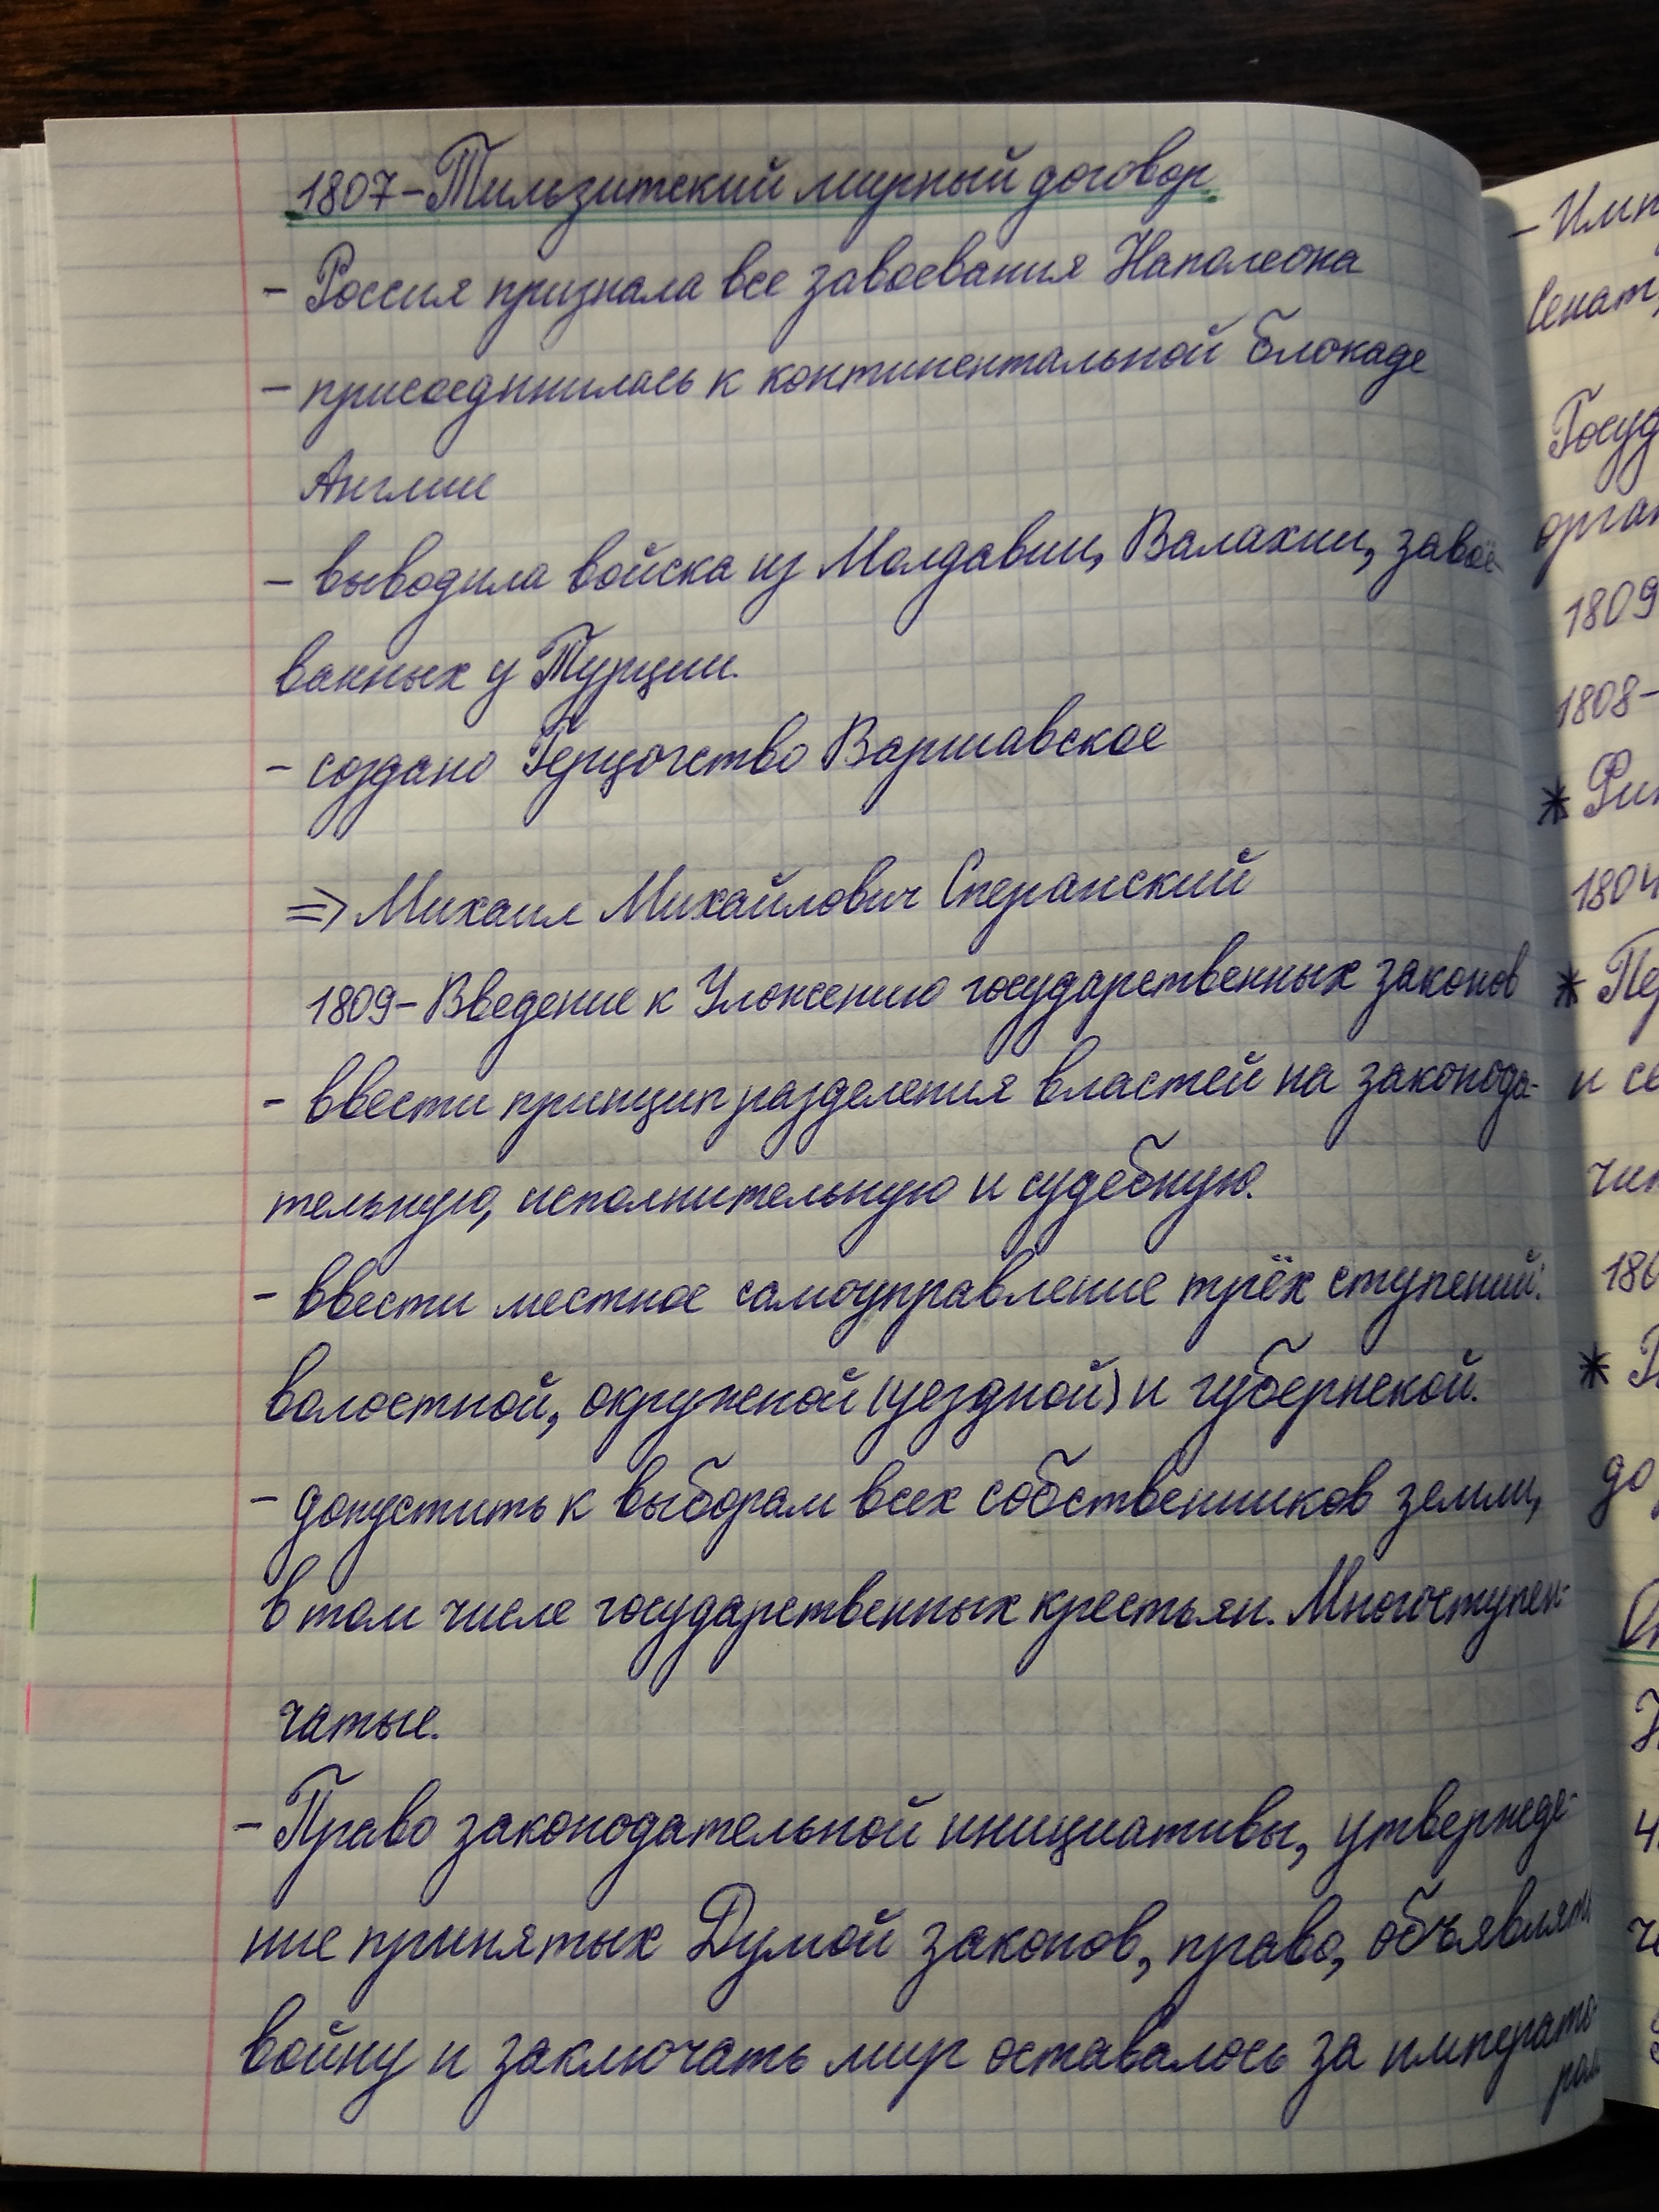 1807 – Тильзитский мирный договор
– Россия признала все завоевания Наполеона
– присоединилась к континентальной блокаде
Англии
– выводила войска из Молдавии, Валахии, завоё-
ванных у Турции.
– создано Герцогство Варшавское
⇒ Михаил Михайлович Сперанский
1809 – Введение к Уложению государственных законов
– ввести принцип разделения властей на законода-
тельную, исполнительную и судебную.
– ввести местное самоуправление трёх ступений:
волостной, окружной (уездной) и губернской.
– допустить к выборам всех собственников земли,
в том числе государственных крестьян. Многоступен-
чатые.
– Право законодательной инициативы, утвержде-
ние принятых Думой законов, право, объявлять
войну и заключать мир оставалось за императо-
ром
– Имп
Сенат,
Госуд
орган
1809
1808–
* Фин
1804
* Пе
и се
чин
180
*
до